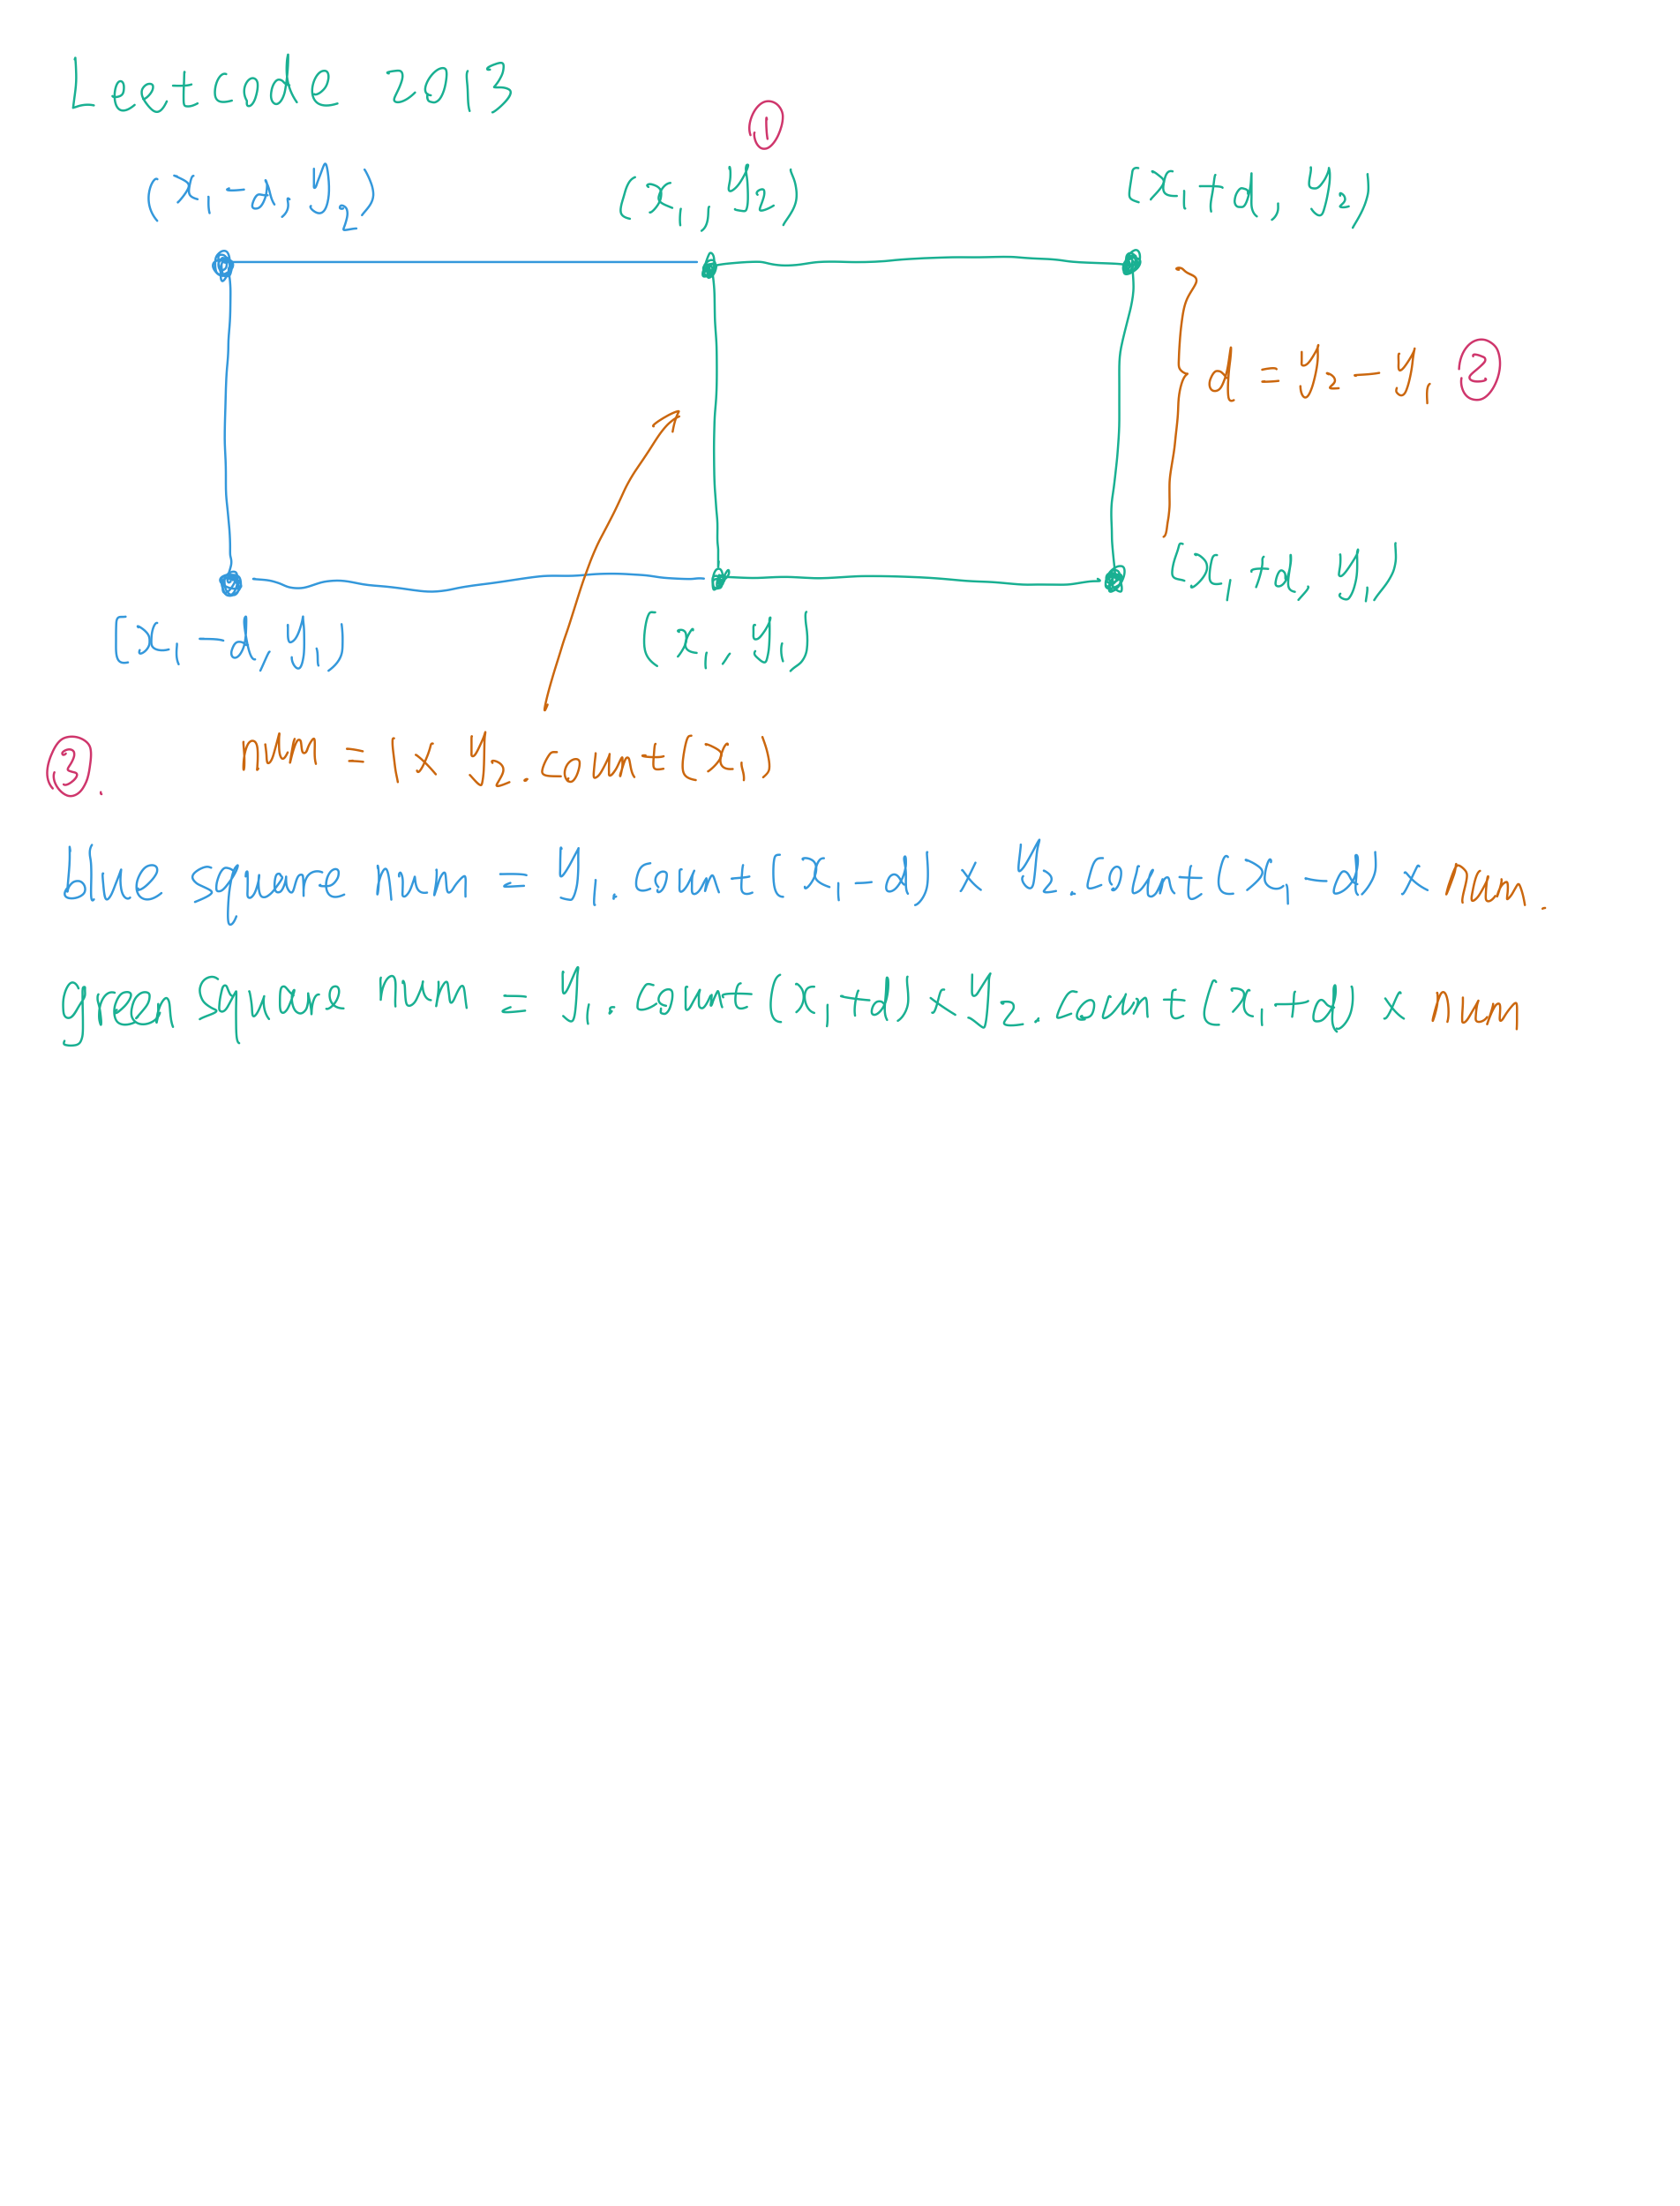 Leetcode 2013
①
(x₁-d, y₂) (x₁, y₂) (x₁+d, y₂)
d = y₂ - y₁ ②
(x₁-d, y₁) (x₁, y₁) (x₁+d, y₁)
③. num = 1 x y₂.count(x₁)
blue square num = y₁.count(x₁-d) x y₂.count(x₁-d) x num.
green square num = y₁.count(x₁+d) x y₂.count(x₁+d) x num